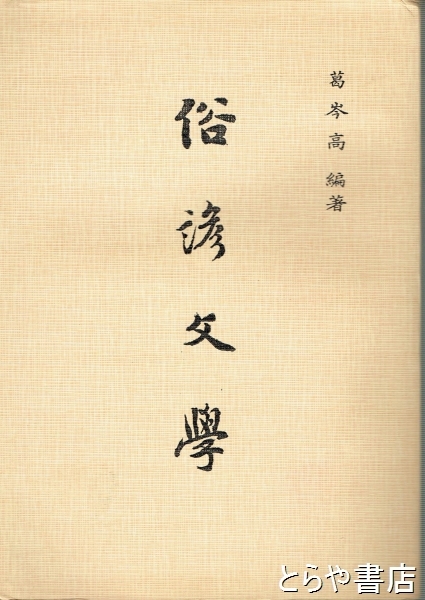 葛岑高 編著
俗諺文學
とらや書店